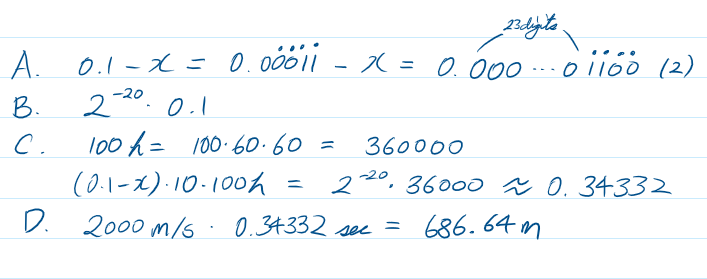 23digits
A. 0.1 - x = 0.00̇0̇1̇1̇ - x = 0.000...01̇1̇0̇0̇ (2)
B. 2⁻²⁰ · 0.1
C. 100h = 100·60·60 = 360000
(0.1-x)·10·100h = 2⁻²⁰· 36000 ≈ 0.34332
D. 2000 m/s · 0.34332 sec = 686.64m